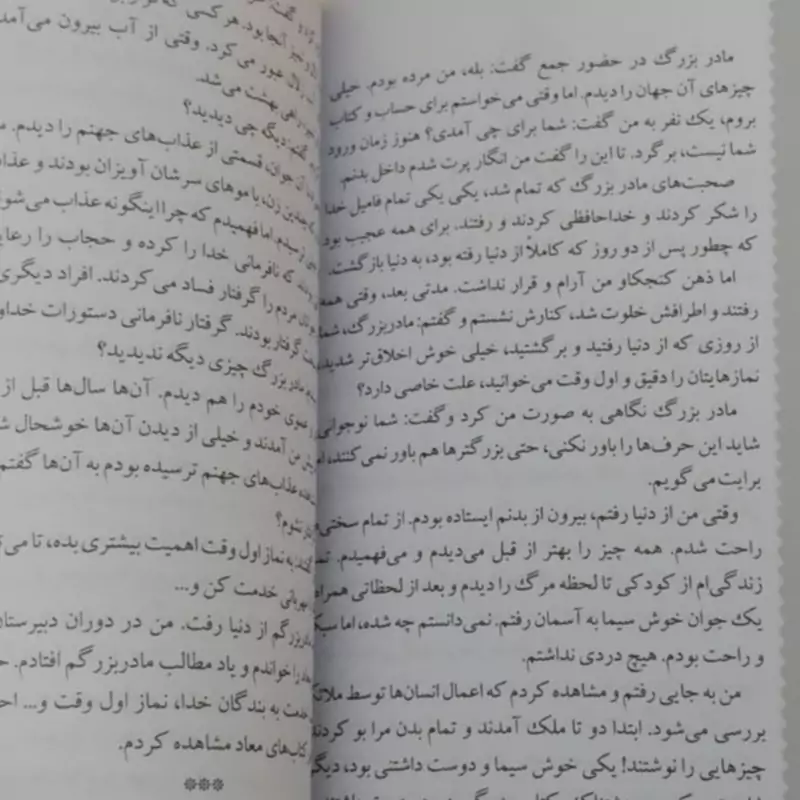 مادر بزرگ در حضور جمع گفت: بله، من مرده بودم. خیلی
چیزهای آن جهان را دیدم. اما وقتی می‌خواستم برای حساب و کتاب
بروم، یک نفر به من گفت: شما برای چی آمدی؟ هنوز زمان ورود
شما نیست، برگرد. تا این را گفت من انگار پرت شدم داخل بدنم.
صحبت‌های مادر بزرگ که تمام شد، یکی یکی تمام فامیل خدا
را شکر کردند و خداحافظی کردند و رفتند. برای همه عجیب بود
که چطور پس از دو روز که کاملاً از دنیا رفته بود، به دنیا بازگشت.
اما ذهن کنجکاو من آرام و قرار نداشت. مدتی بعد، وقتی همه
رفتند و اطرافش خلوت شد، کنارش نشستم و گفتم: مادربزرگ، شما
از روزی که از دنیا رفتید و برگشتید، خیلی خوش اخلاق‌تر شدید،
نمازهایتان را دقیق و اول وقت می‌خوانید، علت خاصی دارد؟
مادر بزرگ نگاهی به صورت من کرد وگفت: شما نوجوانی
شاید این حرف‌ها را باور نکنی، حتی بزرگترها هم باور نمی‌کنند،
برایت می‌گویم.
وقتی من از دنیا رفتم، بیرون از بدنم ایستاده بودم. از تمام سختی
راحت شدم. همه چیز را بهتر از قبل می‌دیدم و می‌فهمیدم.
زندگی‌ام از کودکی تا لحظه مرگ را دیدم و بعد از لحظاتی همراه
یک جوان خوش سیما به آسمان رفتم. نمی‌دانستم چه شده، اما
و راحت بودم. هیچ دردی نداشتم.
من به جایی رفتم و مشاهده کردم که اعمال انسان‌ها توسط
بررسی می‌شود. ابتدا دو تا ملک آمدند و تمام بدن مرا بو کردند
چیزهایی را نوشتند! یکی خوش سیما و دوست داشتنی بود،
عبور می‌کرد. وقتی از آب بیرون می‌آمد
بهشت می‌شد.
دیگه چی دیدید؟
آن جوان، قسمتی از عذاب‌های جهنم را دیدم.
چندین زن، با موهای سرشان آویزان بودند و
اما فهمیدم که چرا اینگونه عذاب
که نافرمانی خدا را کرده و حجاب را
مردم را گرفتار فساد می‌کردند. افراد دیگری
گرفتار بودند. گرفتار نافرمانی دستورات
مادر بزرگ چیزی دیگه ندیدید؟
عموی خودم را هم دیدم. آن‌ها سال‌ها قبل از
من آمدند و خیلی از دیدن آن‌ها خوشحال
عذاب‌های جهنم ترسیده بودم به آن‌ها
شوم؟
به نماز اول وقت اهمیت بیشتری بده، تا
خدمت کن و...
مادربزرگم از دنیا رفت. من در دوران
را خواندم و یاد مطالب مادربزرگم افتادم.
خدمت به بندگان خدا، نماز اول وقت و...
کتاب‌های معاد مشاهده کردم.
***